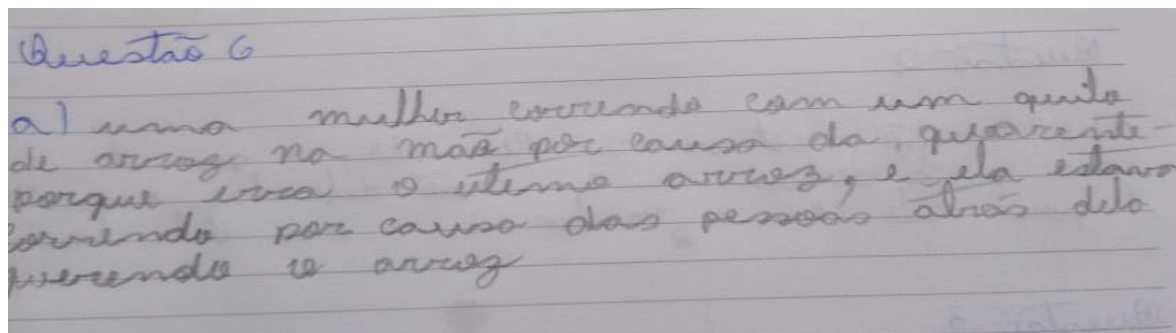 Questão 6
a) uma mulher correndo com um quilo
de arroz na mão por causa da quarente
porque erra o utemo arroz, e ela estava
correndo por causa das pessoas atrás dela
querendo o arroz